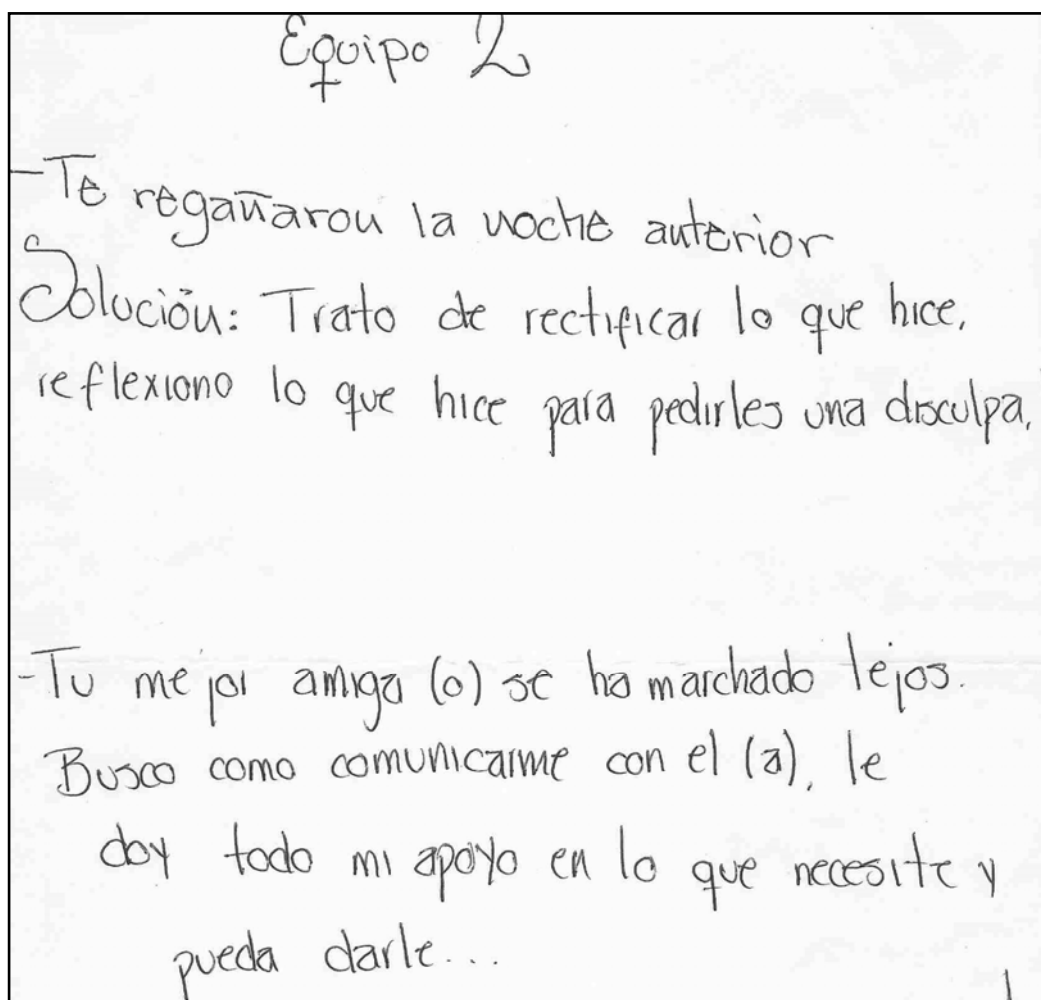 Equipo 2
-Te regañaron la noche anterior
Solución: Trato de rectificar lo que hice,
reflexiono lo que hice para pedirles una disculpa.
-Tu mejor amiga (o) se ha marchado lejos.
Busco como comunicarme con el (a), le
doy todo mi apoyo en lo que necesite y
pueda darle...